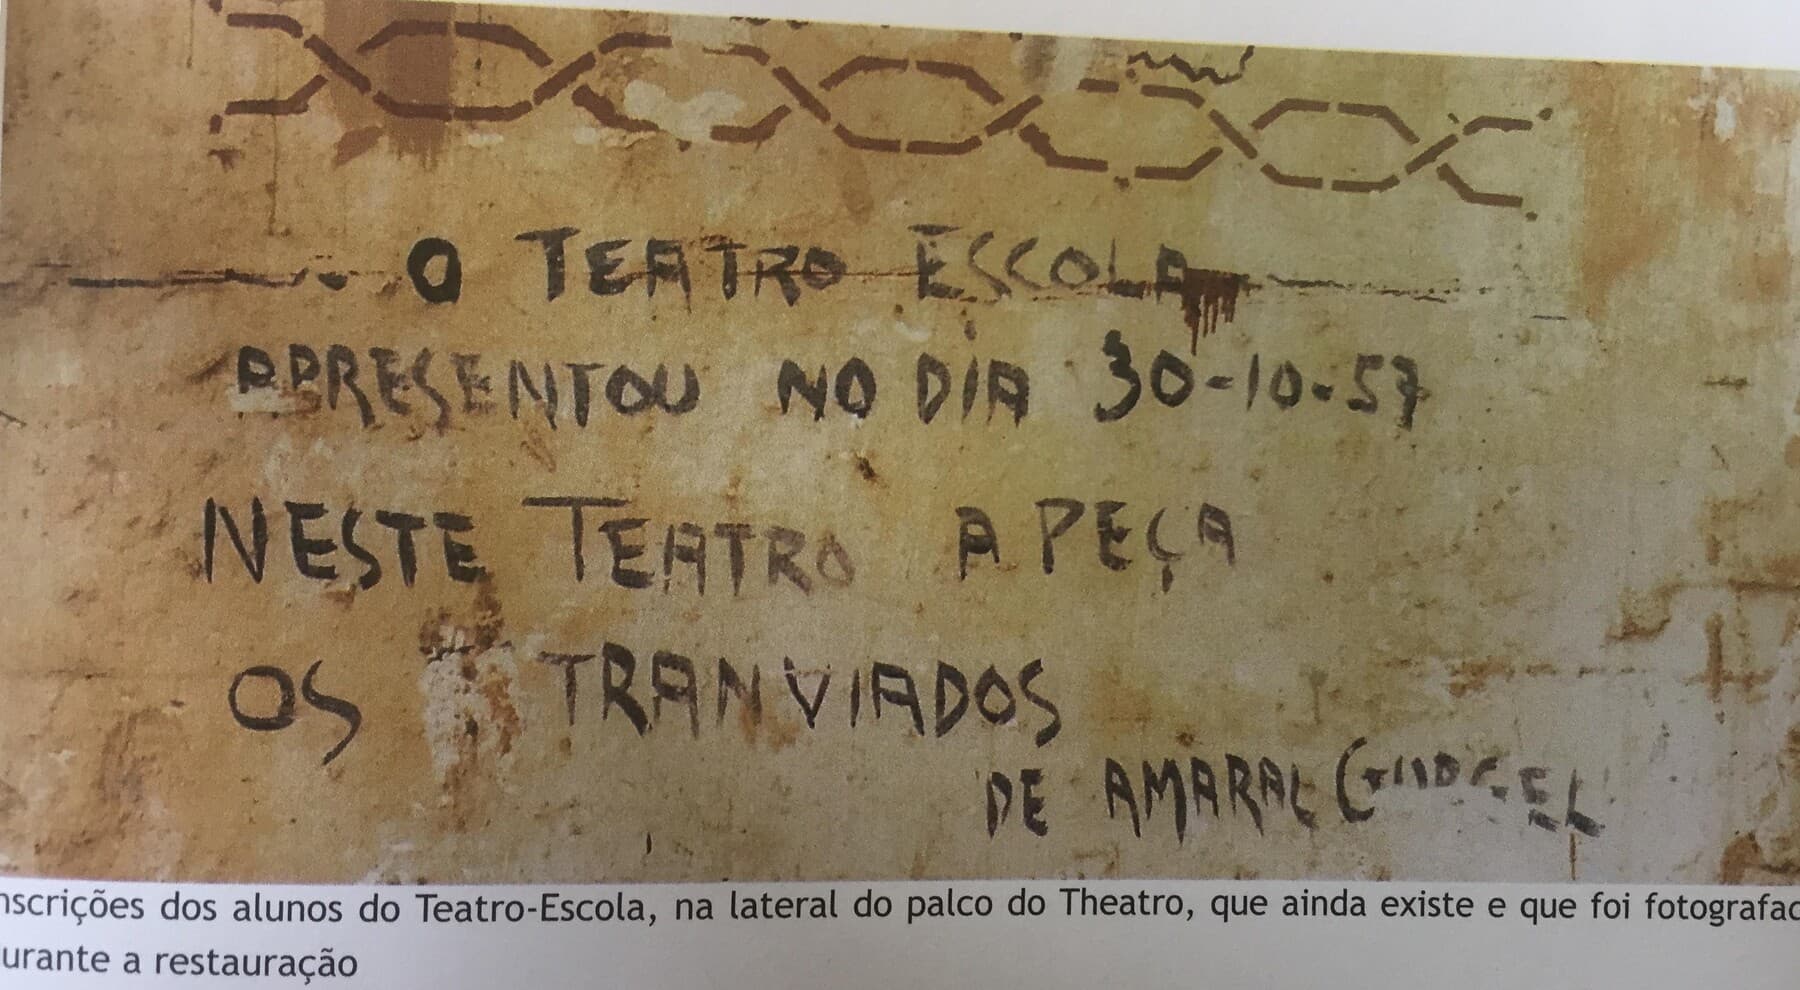 O TEATRO ESCOLA
APRESENTOU NO DIA 30-10-57
NESTE TEATRO A PEÇA
OS TRANVIADOS
DE AMARAL GURGEL
nscrições dos alunos do Teatro-Escola, na lateral do palco do Theatro, que ainda existe e que foi fotografad
urante a restauração